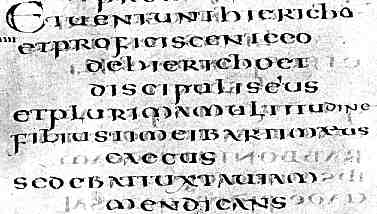 ETUENIUNTHIERICHO
ETPROFICISCENTEEO
DEHIERICHOET
DISCIPULISEIUS
ETPLURIMAMULTITUDINE
FILIUSTIMEIBARTIMAEUS
CAECUS
SEDEBATIUXTAUIAM
MENDICANS